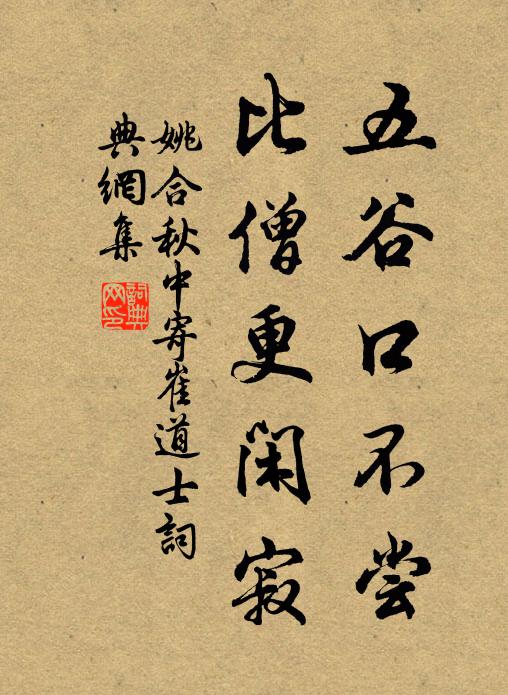 五谷口不尝
比僧更闲寂
姚合秋中寄崔道士詞
典網集
詞典
网印